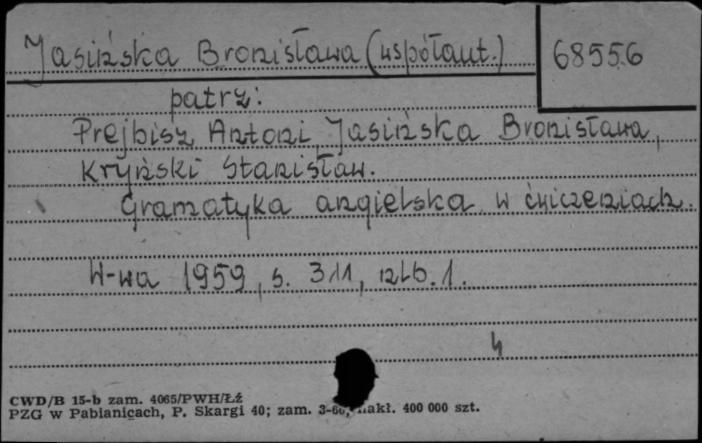 Jasińska Bronisława (współaut.)
68556
patrz:
Prejbisz Antoni, Jasińska Bronisława,
Kryński Stanisław.
Gramatyka angielska w ćwiczeniach.
W-wa 1959, s. 311, nlb. 1.
4
CWD/B 15-b zam. 4065/PWH/Łź
PZG w Pabianicach, P. Skargi 40; zam. 3-60, nakł. 400 000 szt.